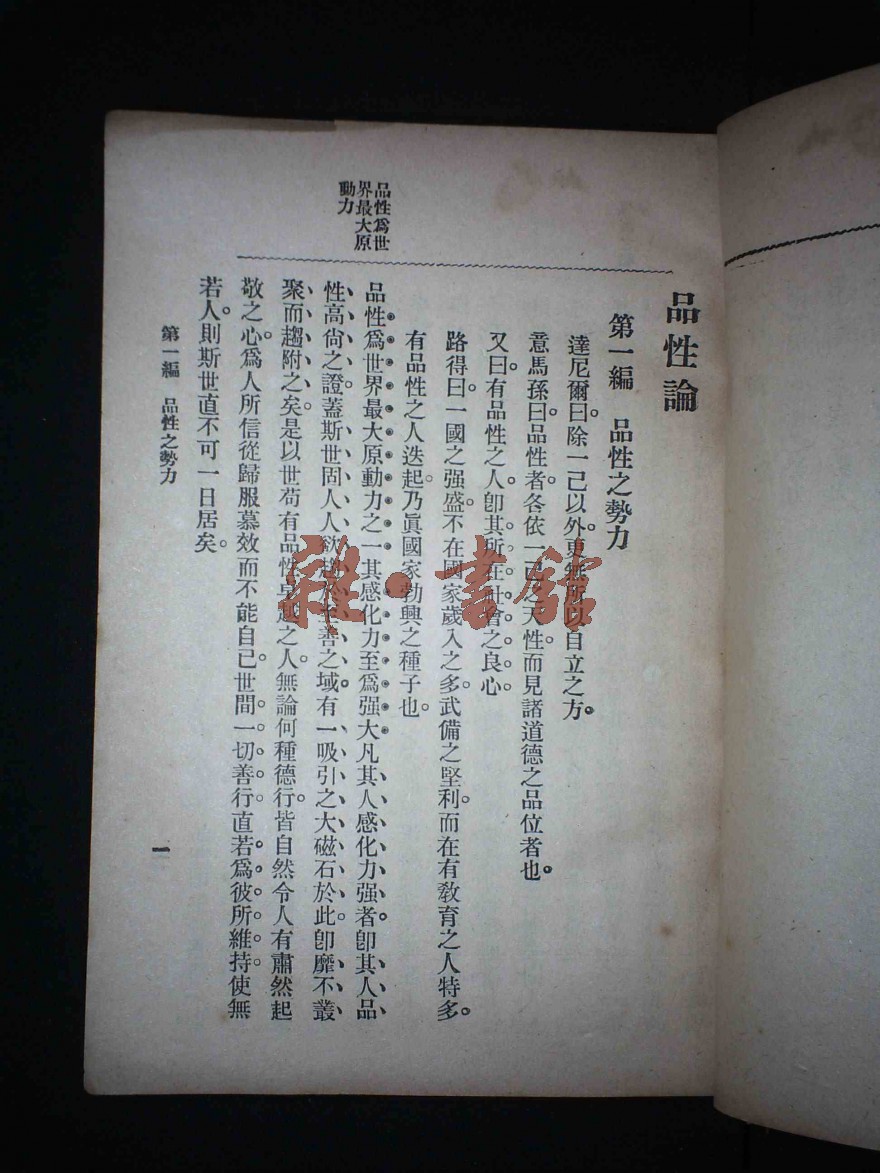 品性論
第一編 品性之勢力
達尼爾曰。除一己以外。更無所以自立之方。
意馬孫曰。品性者。各依一己之天性。而見諸道德之品位者也。
又曰。有品性之人。卽其所在社會之良心。
路得曰。一國之强盛。不在國家歲入之多。武備之堅利。而在有敎育之人特多。
有品性之人迭起。乃眞國家勃興之種子也。
品性爲世界最大原動力
品性爲世界最大原動力之一其感化力至爲强大凡其人感化力强者。卽其人品
性高尙之證。蓋斯世固人人欲趨於至善之域。有一吸引之大磁石於此。卽靡不叢
聚而趨附之矣。是以世苟有品性卓越之人。無論何種德行。皆自然令人有肅然起
敬之心。爲人所信從歸服慕效而不能自已。世間一切善行。直若爲彼所維持。使無
若人。則斯世直不可一日居矣。
第一編 品性之勢力
一
雜·書館